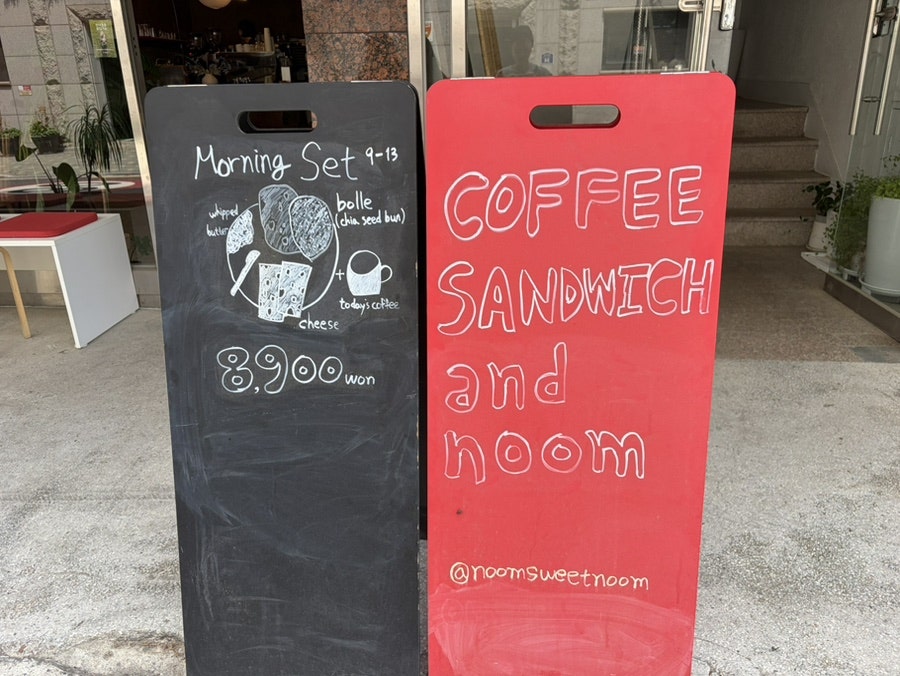 Morning Set 9-13
whipped
butter
bolle
(chia seed bun)
+
today's coffee
cheese
8,900 won
COFFEE
SANDWICH
and
noom
@noomsweetnoom